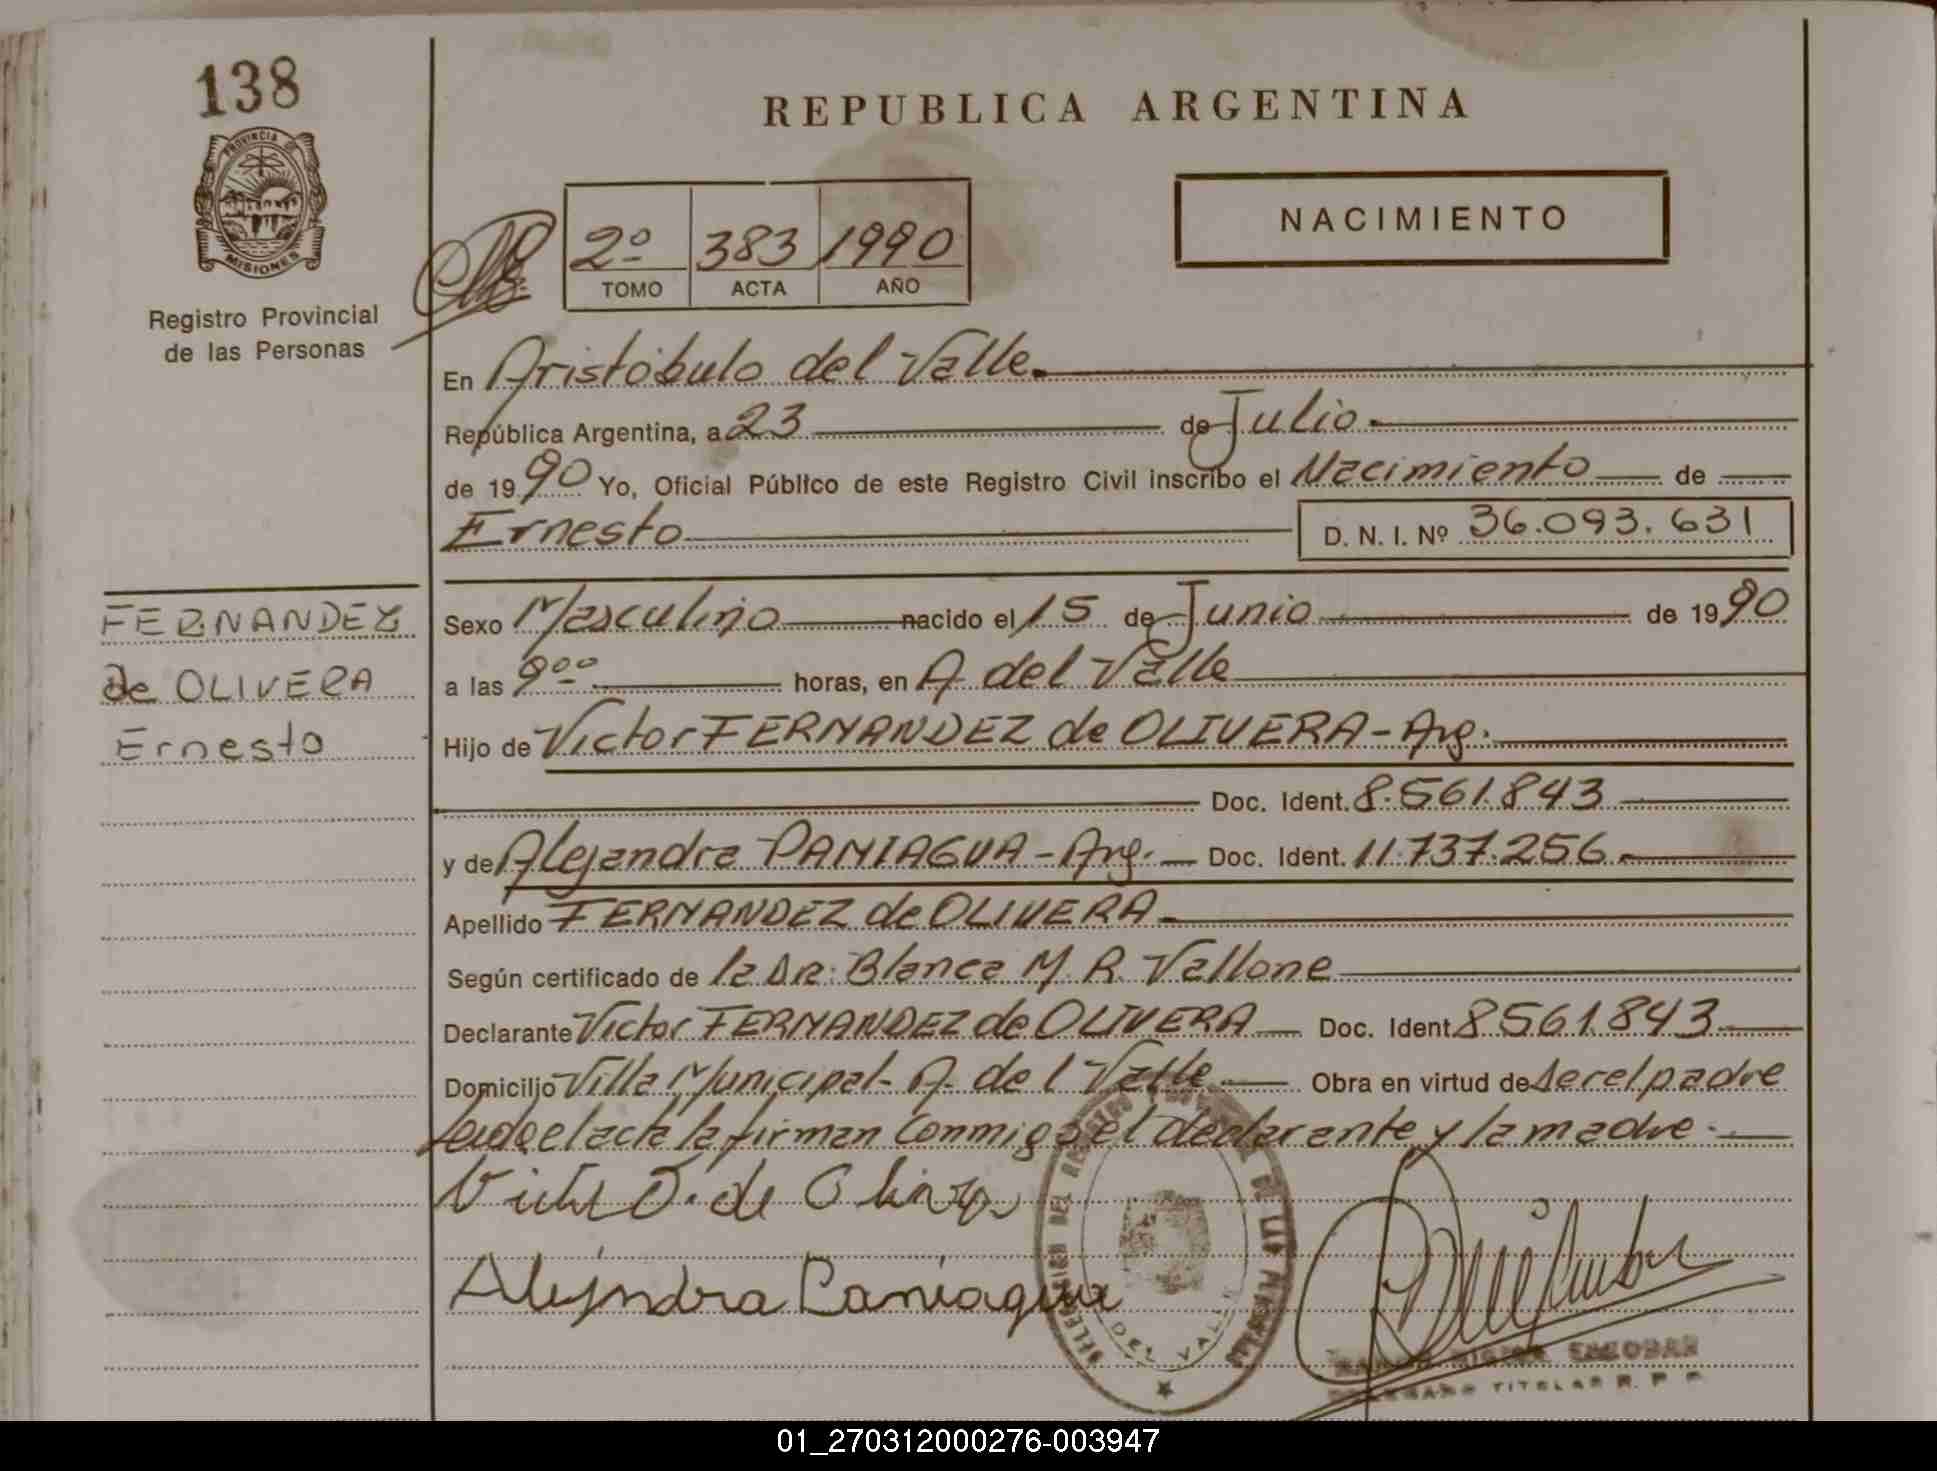 138
REPUBLICA ARGENTINA
PROVINCIA DE
MISIONES
Registro Provincial
de las Personas
2º 383 1990
TOMO ACTA AÑO
NACIMIENTO
En Aristóbulo del Valle.
República Argentina, a 23 de Julio
de 1990 Yo, Oficial Público de este Registro Civil inscribo el Nacimiento de
Ernesto D. N. I. Nº 36.093.631
FERNANDEZ
de OLIVERA
Ernesto
Sexo Masculino nacido el 15 de Junio de 1990
a las 9ºº horas, en A. del Valle
Hijo de Victor FERNANDEZ de OLIVERA - Arg.
Doc. Ident. 8.561.843
y de Alejandra PANIAGUA - Arg. Doc. Ident. 11.737.256
Apellido FERNANDEZ de OLIVERA
Según certificado de la Dra. Blanca M. R. Vallone
Declarante Victor FERNANDEZ de OLIVERA Doc. Ident 8.561.843
Domicilio Villa Municipal - A. del Valle Obra en virtud de ser el padre
Leida el acta la firman conmigo el declarante y la madre.
Victor de Olivera
Alejndra Paniagua
DEL VALLE
ESCOBAR
TITULAR R. P. P.
01_270312000276-003947